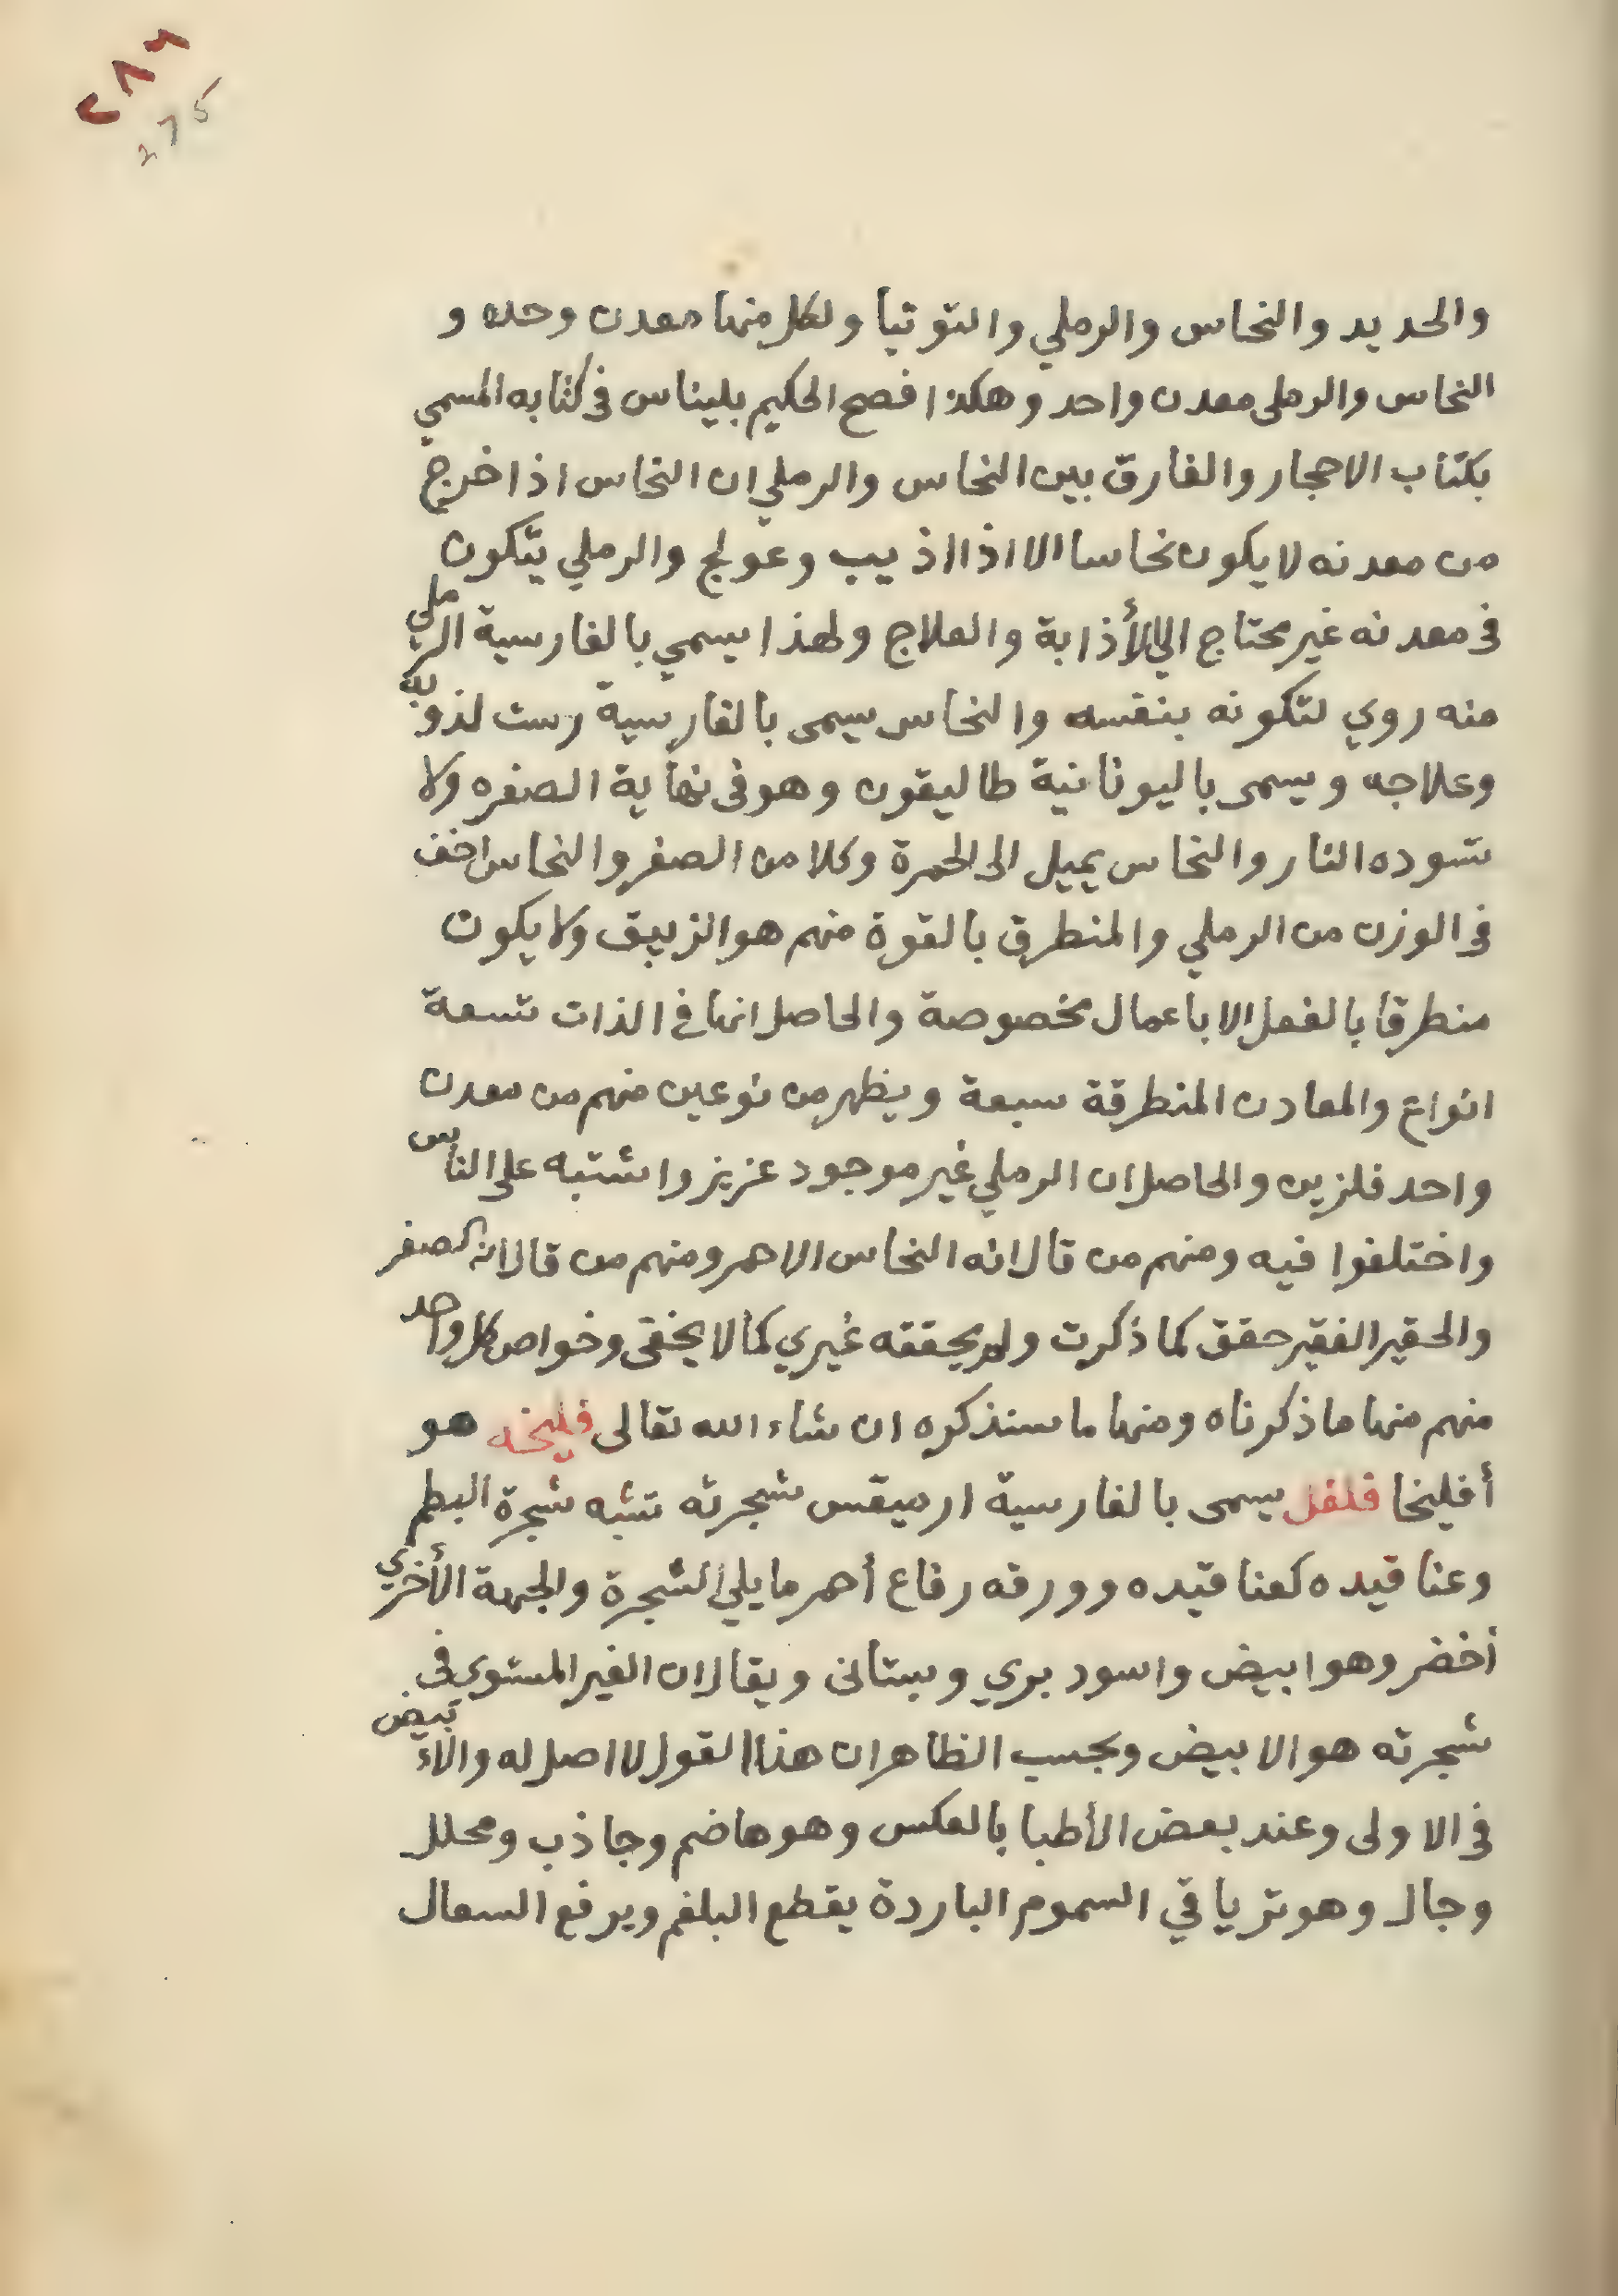 ٢٨٦
275
والحديد والنحاس والرملي والتوتيا ولكل منها معدن وحده و
النحاس والرملى معدن واحد وهكذا افصح الحكيم بليناس فى كتابه المسمي
بكتاب الاحجار والفارق بين النحاس والرملي ان النحاس اذا خرج
من معدنه لا يكون نحاسا الا اذا اذيب وعولج والرملي يتكون
فى معدنه غير محتاج الي الأذابة والعلاج ولهذا يسمي بالفارسية الرملي
منه روي لتكونه بنفسه والنحاس يسمى بالفارسية رست لذوبه
وعلاجه ويسمى باليونانية طاليقون وهو فى نهاية الصفره ولا
تسوده النار والنحاس يميل الى الحمرة وكلا من الصفر والنحاس اخف
فى الوزن من الرملي والمنطرق بالقوة منهم هو الزيبق ولا يكون
منطرقا بالفعل الا باعمال مخصوصة والحاصل انها فى الذات تسعة
انواع والمعادن المنطرقة سبعة ويظهر من نوعين منهم من معدن
واحد فلزين والحاصل ان الرملي غير موجود عزيز واشتبه على الناس
واختلفوا فيه ومنهم من قال انه النحاس الاحمر ومنهم من قال انه الصفر
والحقير الفقير حقق كما ذكرت ولم يحققه غيري كما لا يخفى وخواص كل واحد
منهم منها ما ذكرناه ومنها ما سنذكره ان شاء الله تعالى فليخه هو
أفليخا فلفل يسمى بالفارسية ارميقس شجرته تشبه شجرة البطم
وعناقيده كعناقيده وورقه رفاع أحمر ما يلي الشجرة والجهة الأخري
أخضر وهو ابيض واسود بري وبستانى ويقال ان الغير المستوي فى
شجرته هو الابيض وبحسب الظاهر ان هذا القول لا اصل له والأبيض
فى الاولى وعند بعض الأطبا بالعكس وهو هاضم وجاذب ومحلل
وجال وهو ترياقي السموم الباردة يقطع البلغم ويرفع السعال